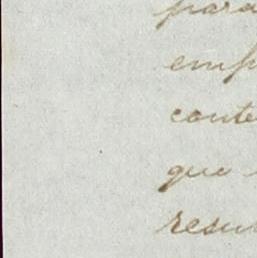 para
emp
conte
que
resu